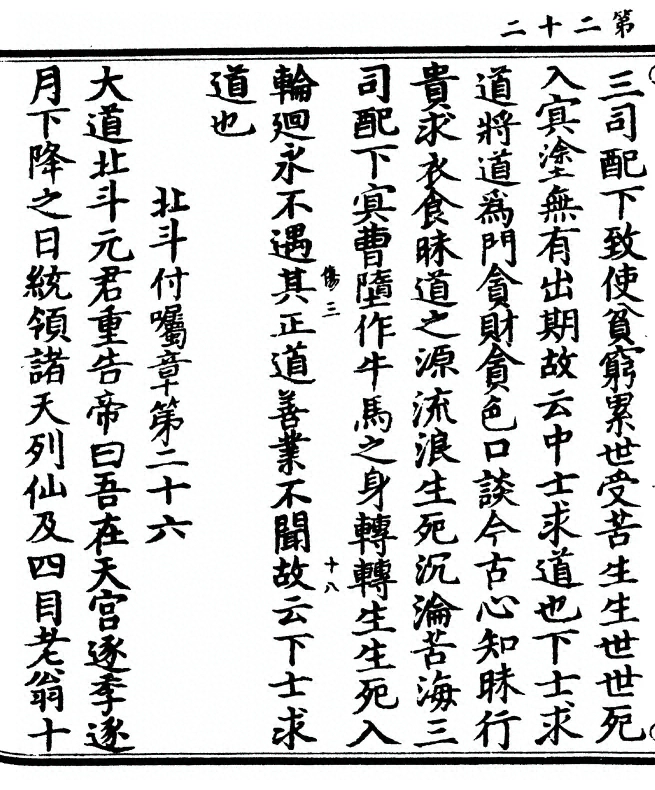 第二十二
三司配下致使貧窮累世受苦生生世世死
入冥塗無有出期故云中士求道也下士求
道將道爲門貪財貪色口談今古心知昧行
貴求衣食昧道之源流浪生死沉淪苦海三
司配下冥曹墮作牛馬之身轉轉生生死入
傷三
十八
輪廻永不遇其正道善業不聞故云下士求
道也
北斗付囑章第二十六
大道北斗元君重告帝曰吾在天宮逐季逐
月下降之日統領諸天列仙及四目老翁十